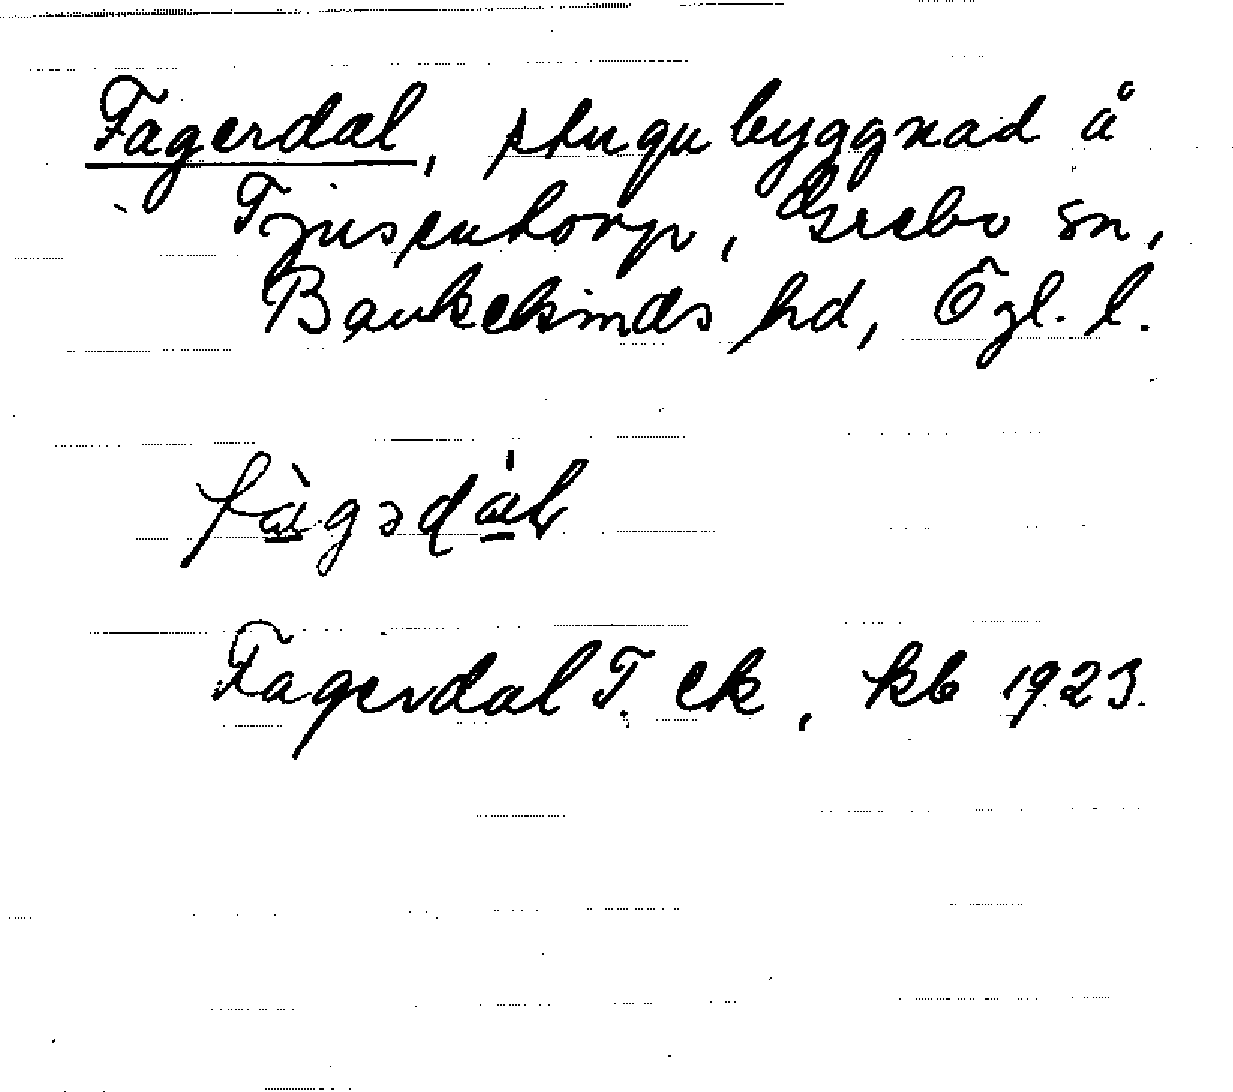 Fagerdal, stugubyggnad å
Tjusentorp, Grebo sn,
Bankekinds hd, Ögl. l.
fàgədál
Fagerdal T. ek, kb 1923.